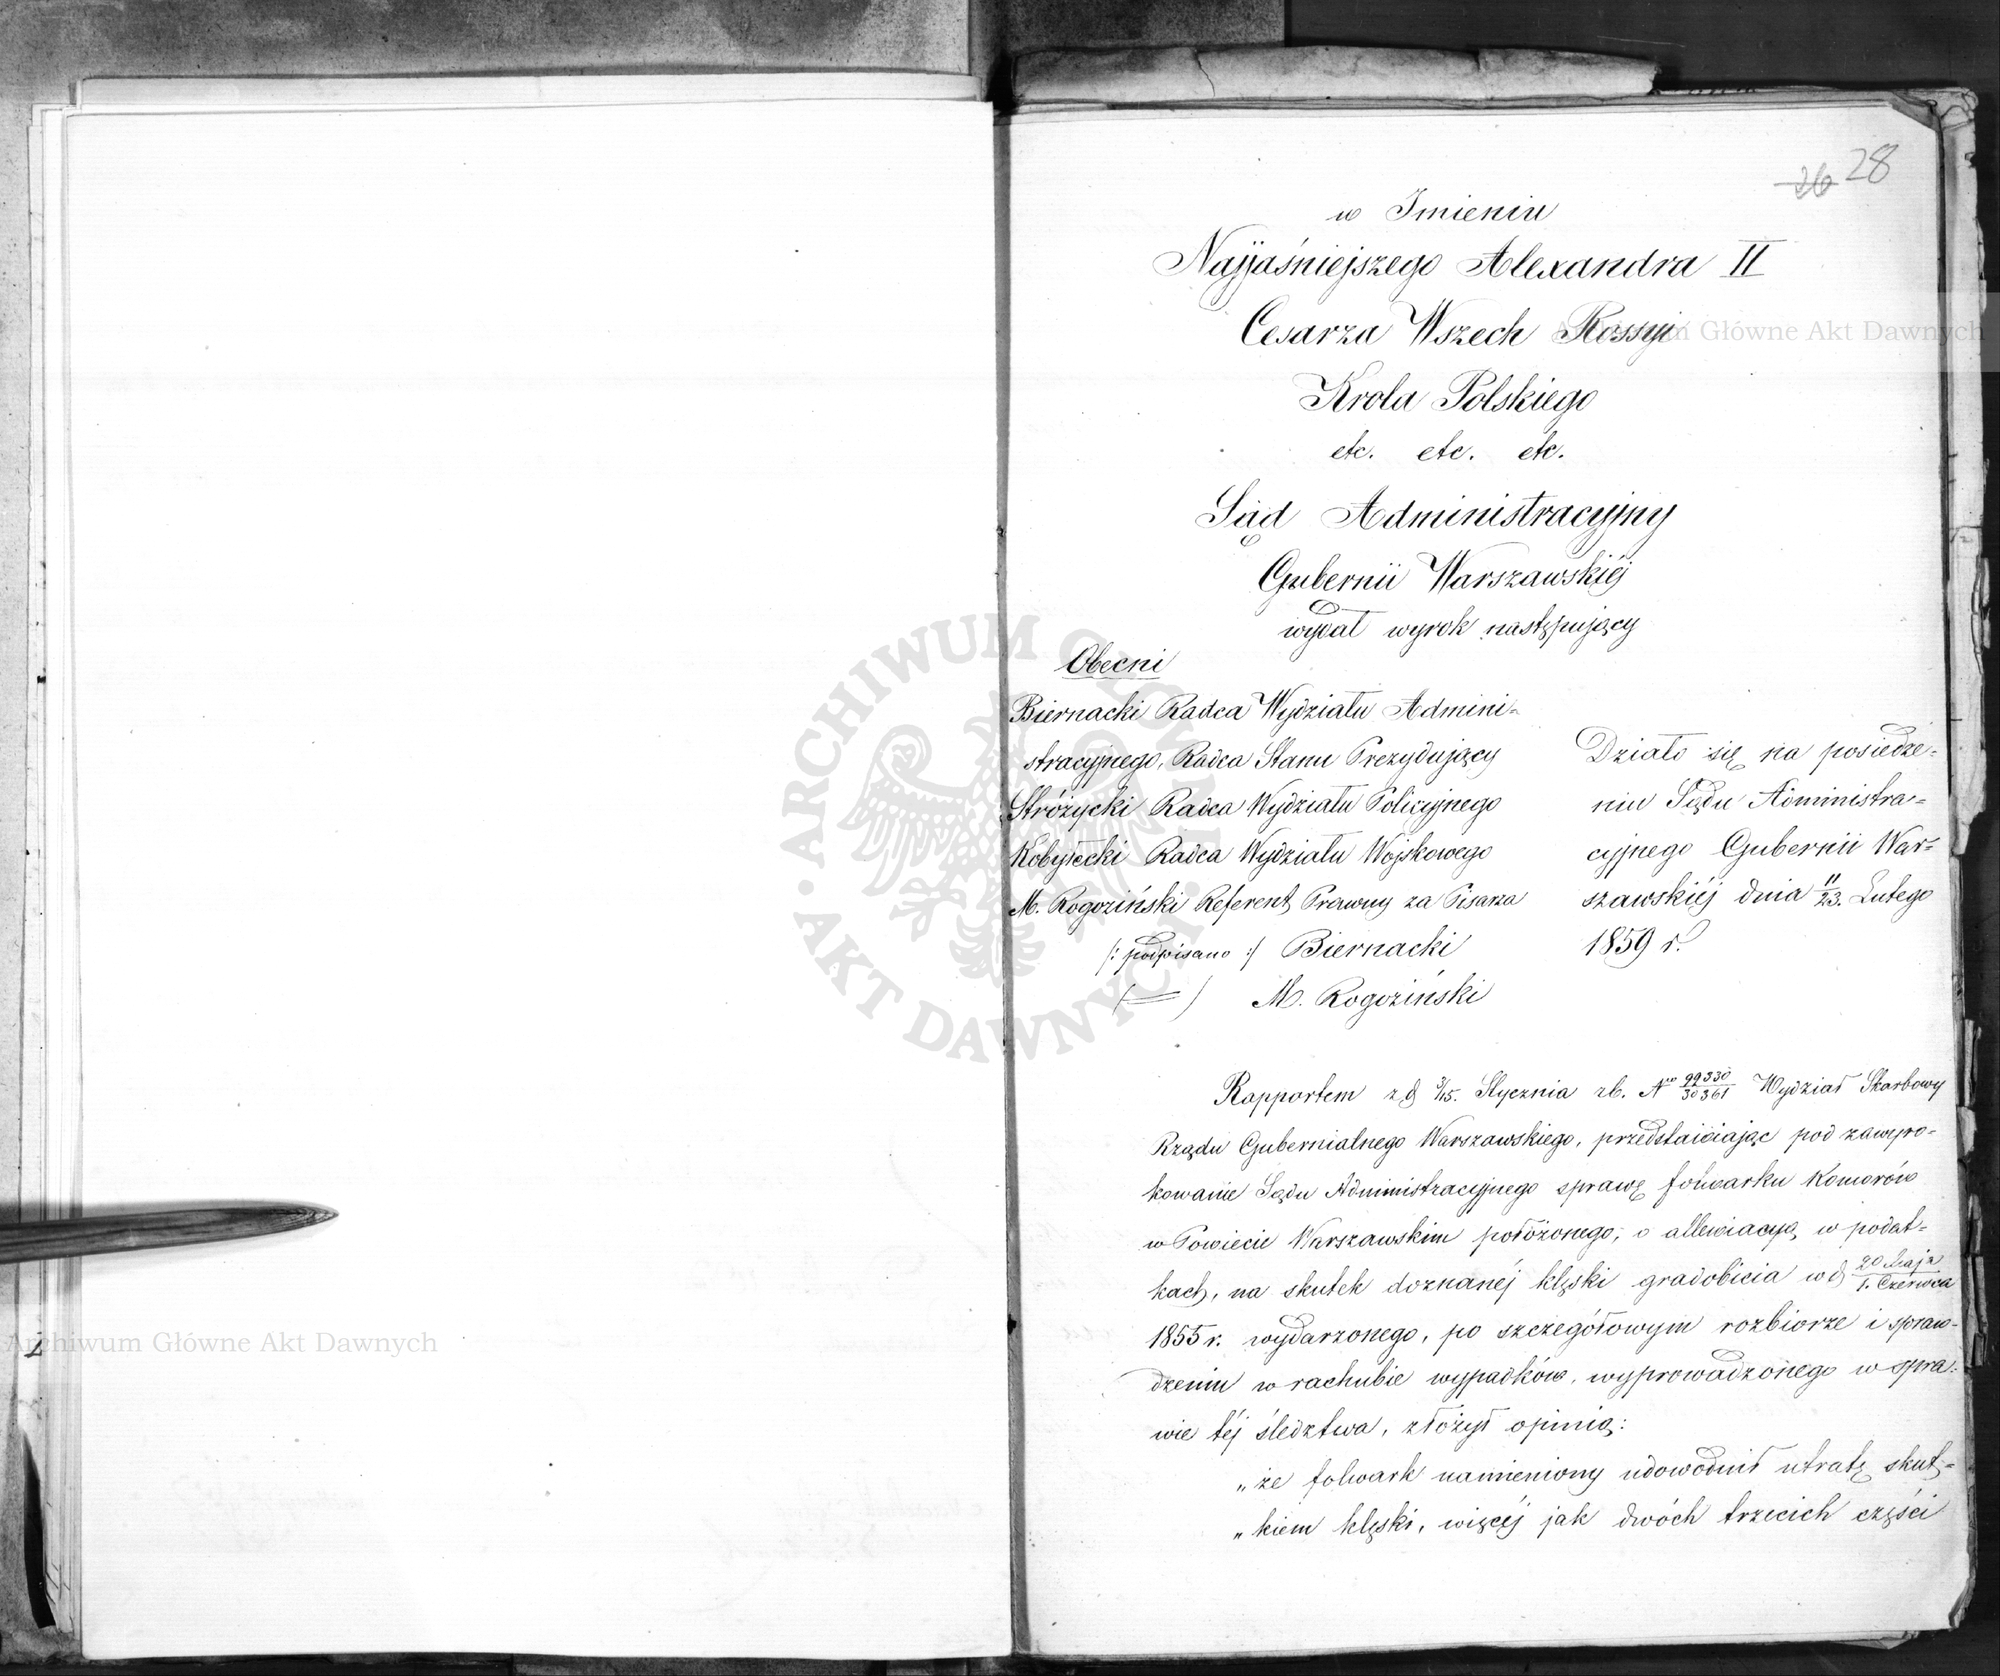 26 28
w Imieniu
Najjaśniejszego Alexandra II
Cesarza Wszech Rossyi
Krola Polskiego
etc. etc. etc.
Sąd Administracyjny
Gubernii Warszawskiéj
wydał wyrok następujący
Obecni
Biernacki Radca Wydziału Admini-
stracyjnego, Radca Stanu Prezydujący
Stróżycki Radca Wydziału Policyjnego
Kobyłecki Radca Wydziału Wojskowego
M. Rogoziński Referent Prawny za Pisarza
/: podpisano :/ Biernacki
( = ) M. Rogoziński
Działo się na posiedze-
niu Sądu Administra-
cyjnego Gubernii War-
szawskiéj dnia 11/23. Lutego
1859 r.
Rapportem z d. 3/15. Stycznia rb. No 99330/30361 Wydział Skarbowy
Rządu Gubernialnego Warszawskiego, przedstawiając pod zawyro-
kowanie Sądu Administracyjnego sprawę folwarku Komorów
w Powiecie Warszawskim położonego, o allewiacyą w podat-
kach, na skutek doznanéj klęski gradobicia w d. 20 Maja/1. Czerwca
1855 r. wydarzonego, po szczegółowym rozbiorze i spraw-
dzeniu w rachubie wypadków, wyprowadzonego w spra-
wie téj śledztwa, złożył opinią:
„że folwark namieniony udowodnił utratę skut-
„kiem klęski, więcéj jak dwóch trzecich części
Archiwum Główne Akt Dawnych
Archiwum Główne Akt Dawnych
ARCHIWUM GŁÓWNE AKT DAWNYCH